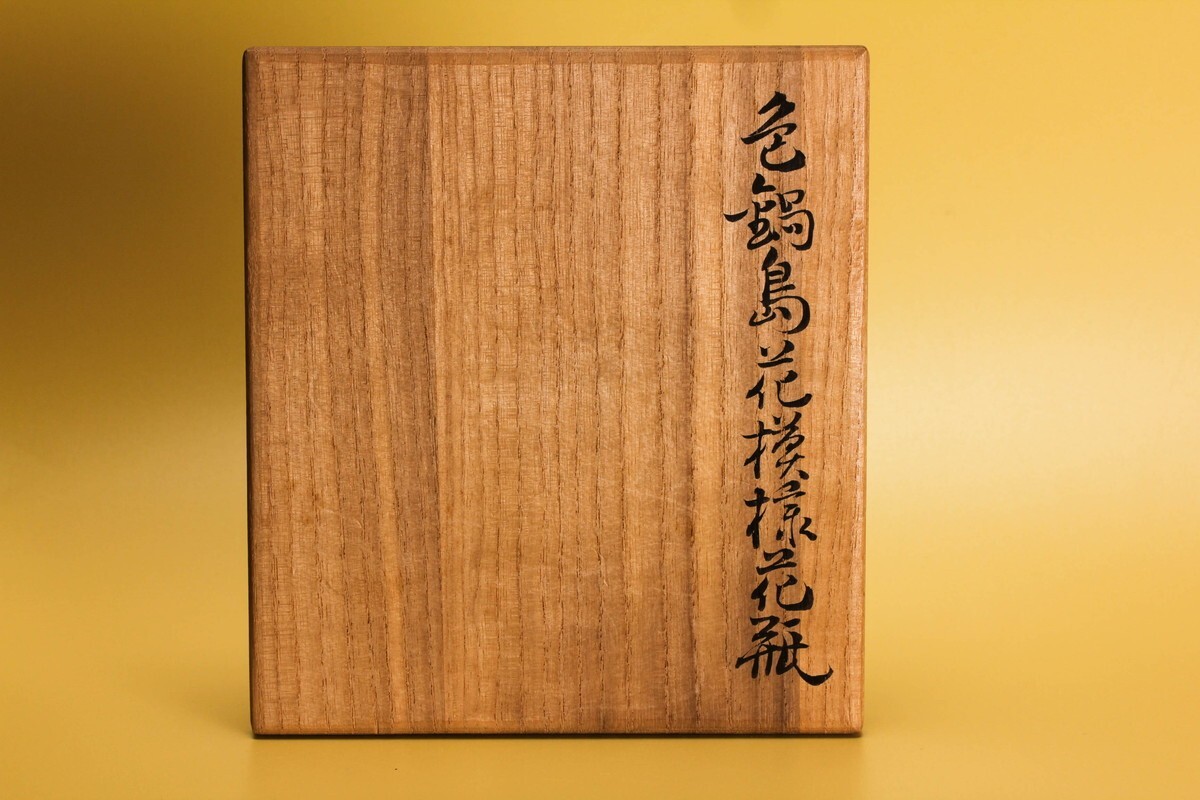 色鍋島花模様花瓶